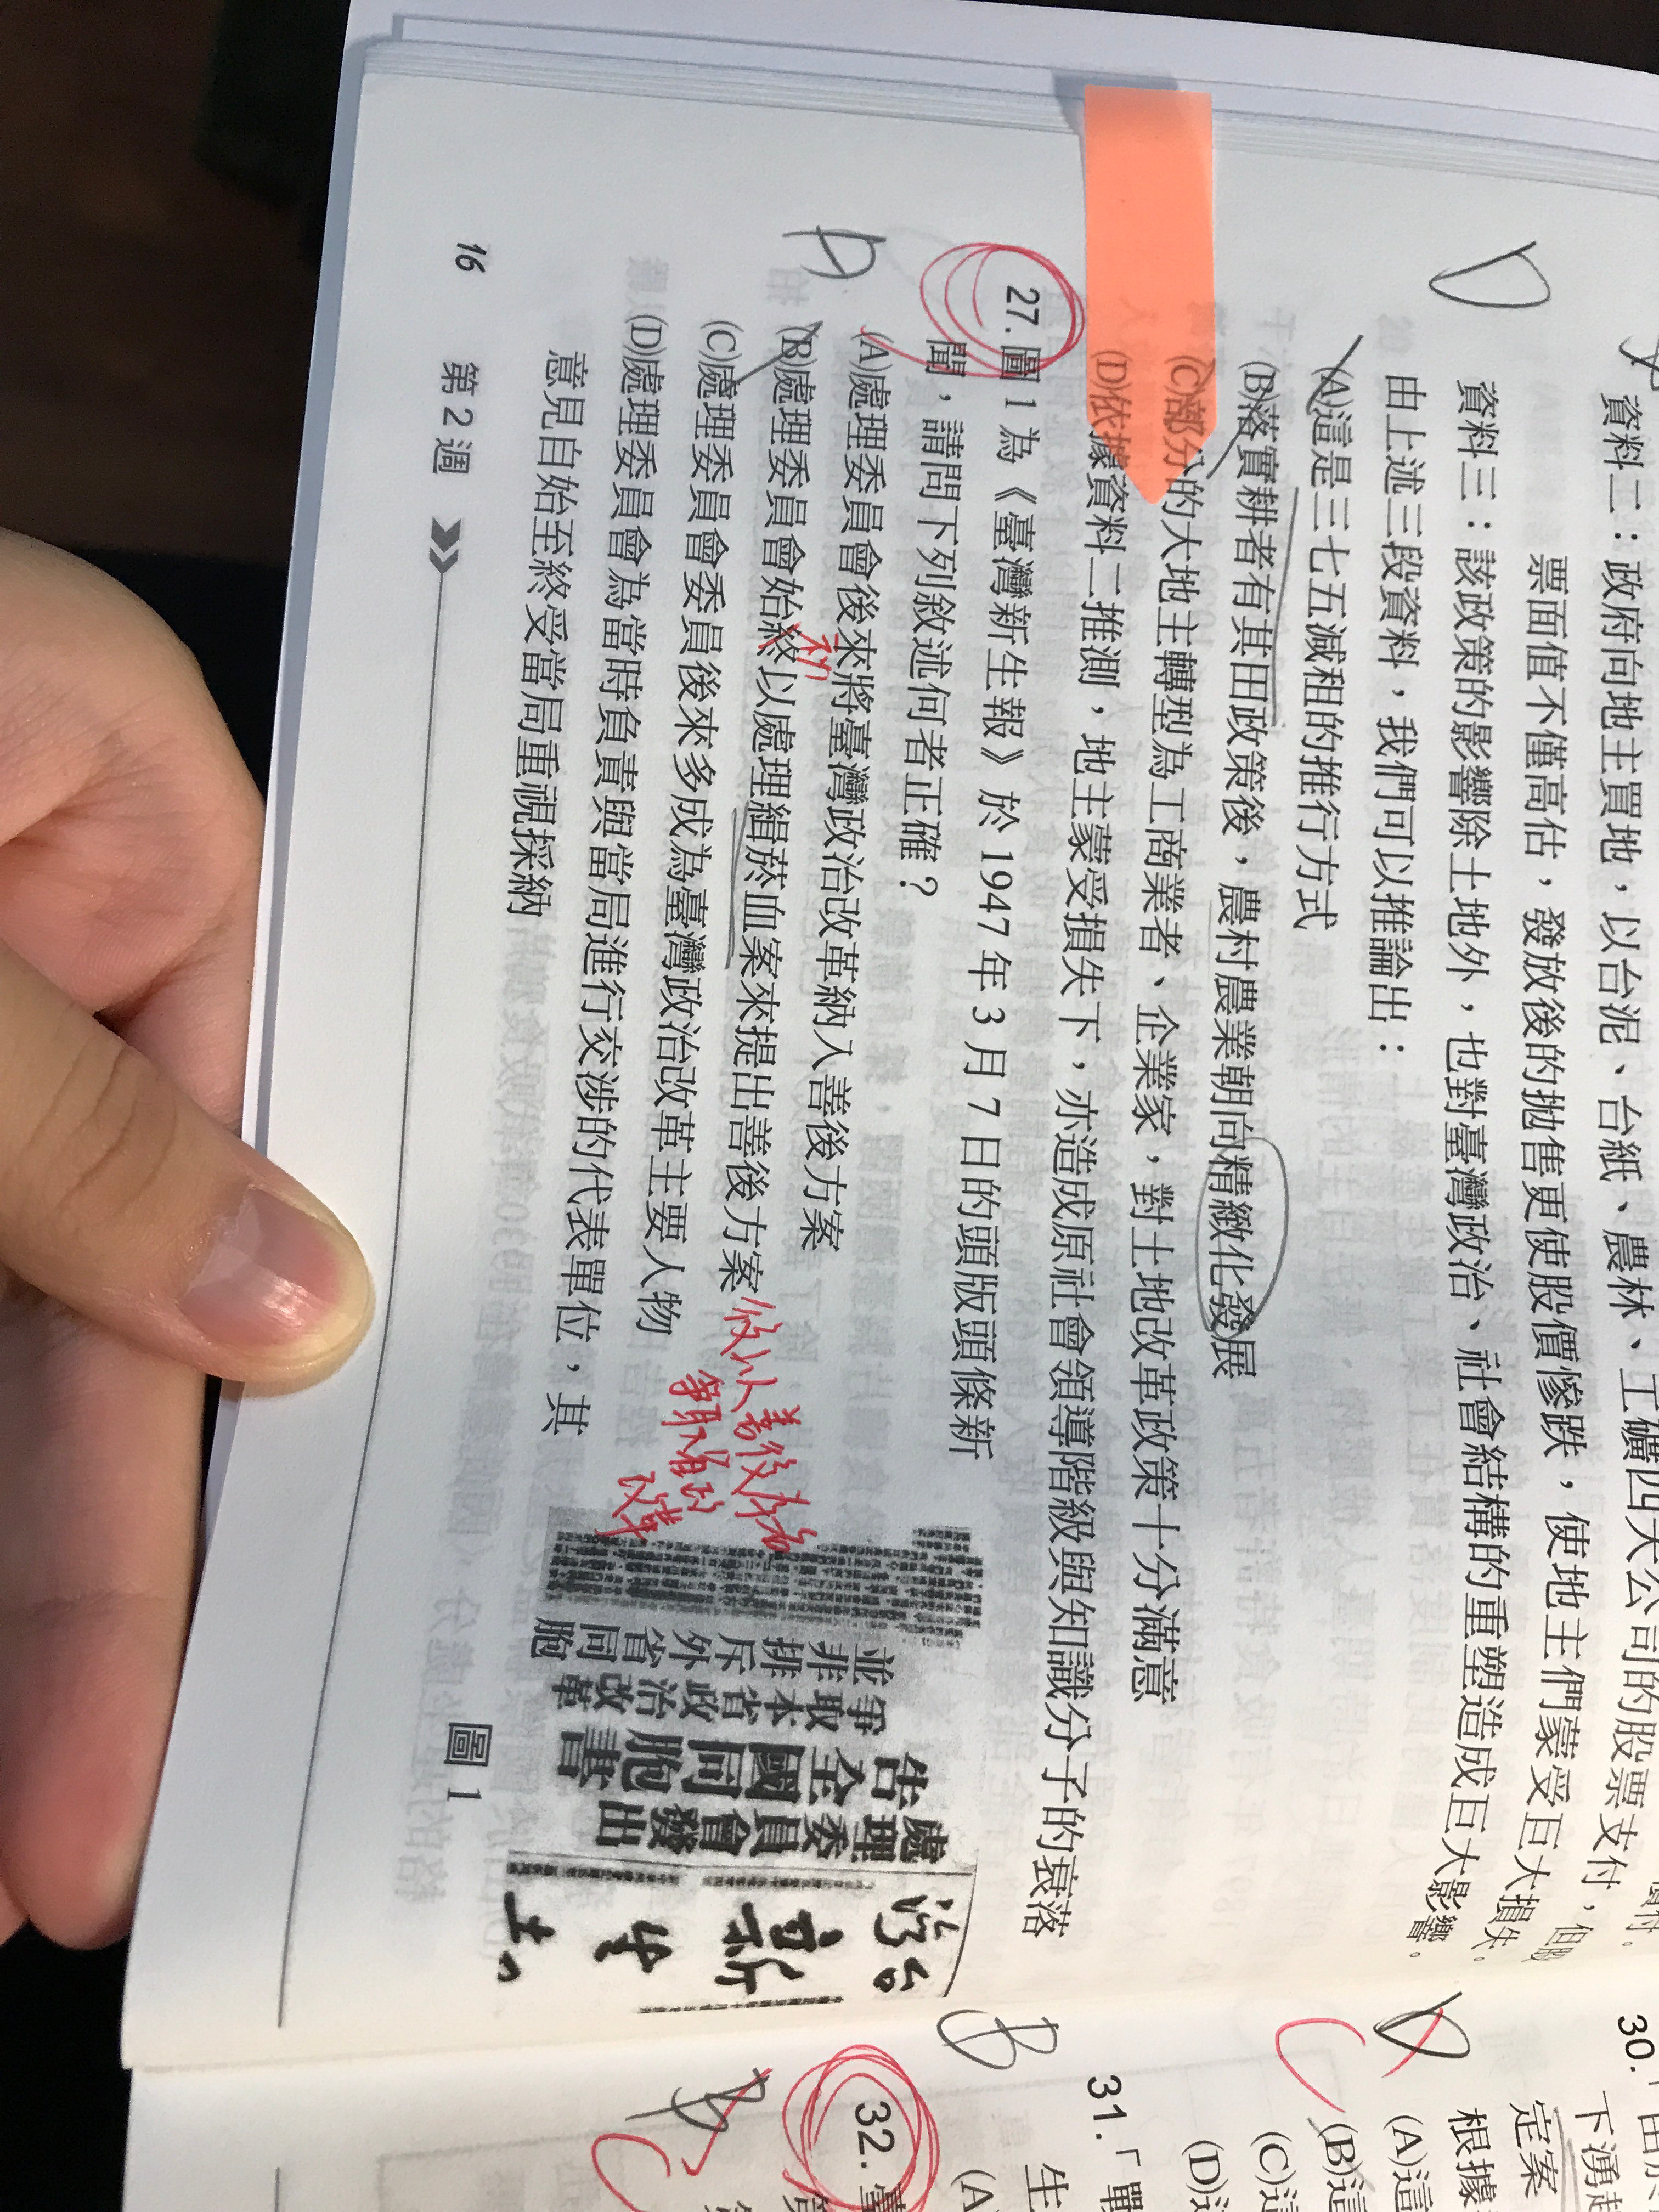 資料二：政府向地主買地，以台泥、台紙、農林、工礦四大公司的股票支付，但股
票面值不僅高估，發放後的拋售更使股價慘跌，使地主們蒙受巨大損失。
資料三：該政策的影響除土地外，也對臺灣政治、社會結構的重塑造成巨大影響。
由上述三段資料，我們可以推論出：
(A)這是三七五減租的推行方式
(B)落實耕者有其田政策後，農村農業朝向精緻化發展
(C)部分的大地主轉型為工商業者、企業家，對土地改革政策十分滿意
(D)依據資料二推測，地主蒙受損失下，亦造成原社會領導階級與知識分子的衰落
D
27.圖1為《臺灣新生報》於1947年3月7日的頭版頭條新
聞，請問下列敘述何者正確？
(A)處理委員會後來將臺灣政治改革納入善後方案
(B)處理委員會始終以處理緝菸血案來提出善後方案
初
後以善後為名
爭取省政
改革
(C)處理委員會委員後來多成為臺灣政治改革主要人物
(D)處理委員會為當時負責與當局進行交涉的代表單位，其
意見自始至終受當局重視採納
處理委員會發出
告全國同胞書
爭取本省政治改革
並非排斥外省同胞
圖1
16 第2週
30.
定案
下湧起
根據
(A)這
(B)這
(C)這
(D)這
B
31.「戰
生
(A
32.臺